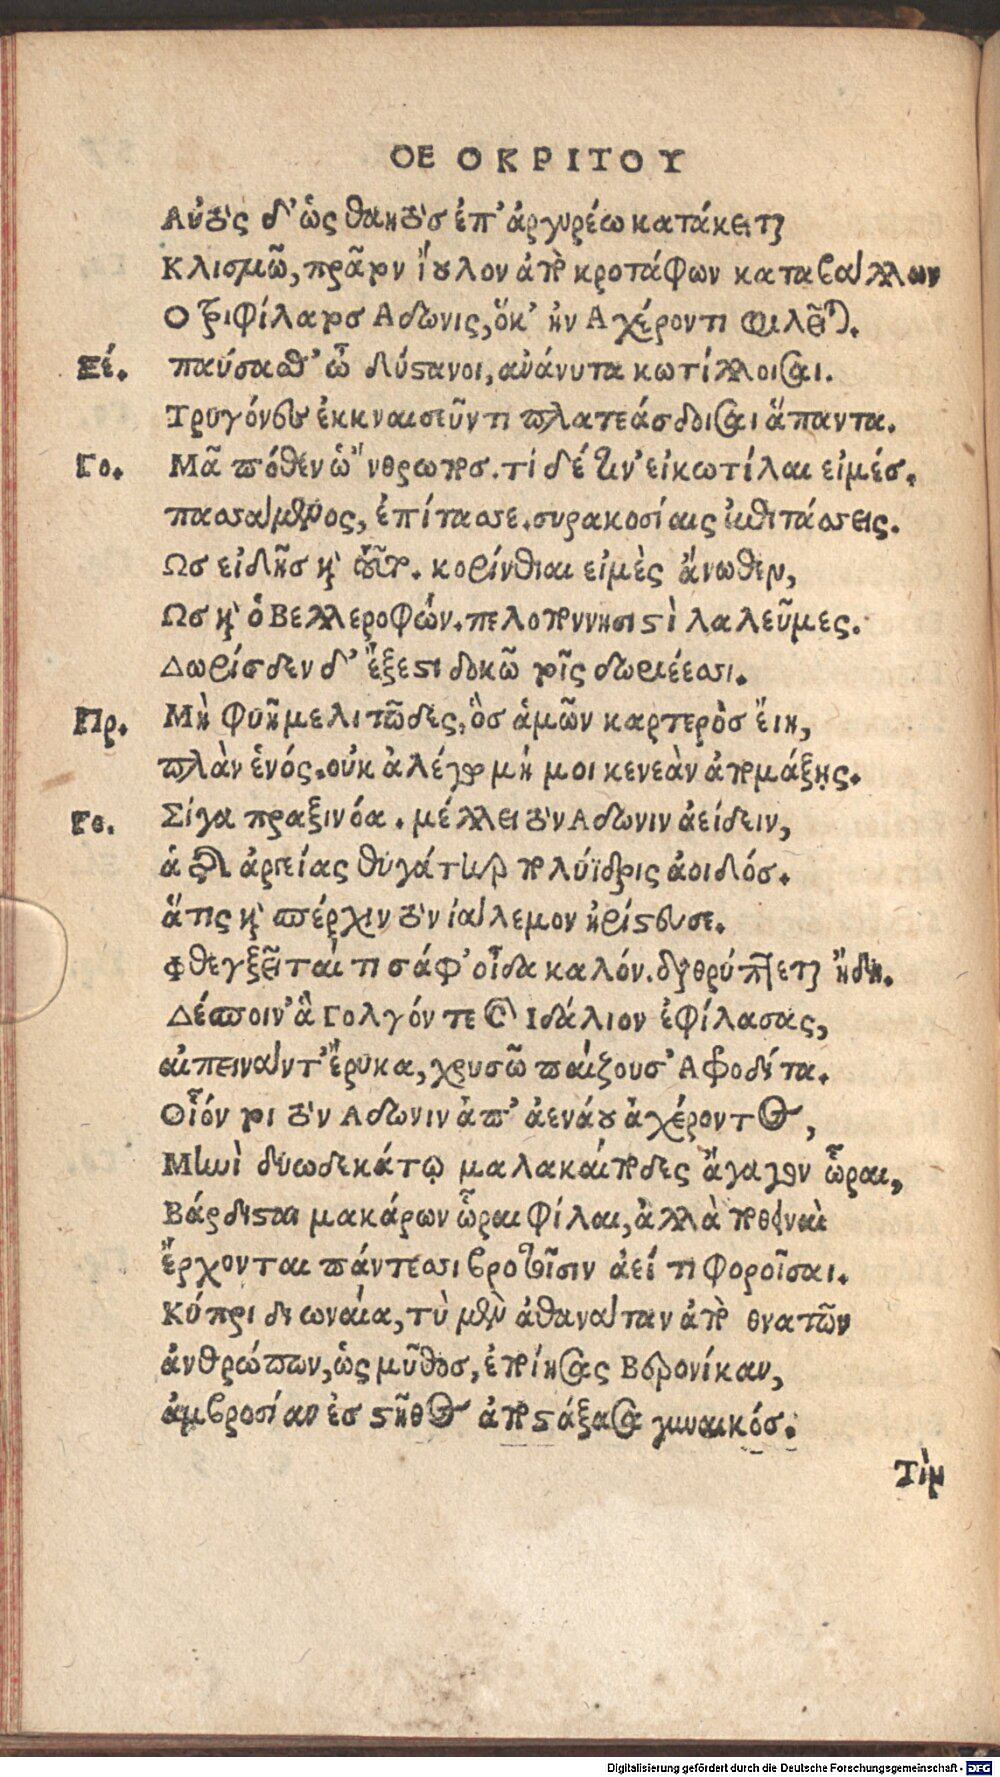 ΘΕΟΚΡΙΤΟΥ
Αὐτὸς δ' ὡς θαητὸς ἐπ' ἀργυρέω κατάκειται
Κλισμῶ, πρᾶτον ἴουλον ἀπὸ κροτάφων καταβάλλων
Ο τριφίλατος Αδωνις, ὅκ' ἠν Αχέροντι φιλεῖται.
Ξέ. παύσαθ' ὦ δύστανοι, ἀνάνυτα κωτίλλοισαι.
Τρυγόνες ἐκκναισεῦντι πλατειάσδοισαι ἅπαντα.
Γο. Μᾶ πόθεν ὥνθρωπος. τί δέ τιν' εἰ κωτίλαι εἰμές.
πασσάμενος, ἐπίτασσε. συρακοσίαις ἐπιτάσσεις.
Ως εἰδῇς καὶ τοῦτο. κορίνθιαι εἰμὲς ἄνωθεν,
Ως καὶ ὁ Βελλεροφών. πελοποννησιστὶ λαλεῦμες.
Δωρίσδεν δ' ἔξεστι δοκῶ τοῖς δωριέεσσι.
Πρ. Μὴ φυῆ μελιτῶδες, ὃς ἁμῶν καρτερὸς εἴη,
πλὰν ἑνός. οὐκ ἀλέγω μή μοι κενεὰν ἀπομάξῃς.
Γο. Σίγα πραξινόα. μέλλει τὸν Αδωνιν ἀείδειν,
ἁ τᾶς ἀργείας θυγάτηρ πολύϊδρις ἀοιδός.
ἅτις καὶ πέρχιν τὸν ἰάλεμον ἠρίστευσε.
Φθεγξεῖταί τι σάφ' οἶδα καλόν. διαθρύπτεται ἤδη.
Δέσποιν' ἃ Γολγόν τε καὶ Ιδάλιον ἐφίλασας,
αἰπεινάν τ' ἔρυκα, χρυσῶ παίζουσ' Αφροδίτα.
Οἷόν τοι τὸν Αδωνιν ἀπ' ἀενάου ἀχέροντος,
Μηνὶ δυωδεκάτῳ μαλακαίποδες ἄγαγον ὧραι,
Βάρδισται μακάρων ὧραι φίλαι, ἀλλὰ ποθειναὶ
ἔρχονται πάντεσσι βροτοῖσιν ἀεί τι φοροῖσαι.
Κύπρι διωναία, τὺ μὲν ἀθανάταν ἀπὸ θνατῶν
ἀνθρώπων, ὡς μῦθος, ἐποίησας Βερονίκαν,
ἀμβροσίαν ἐς στῆθος ἀποστάξασα γυναικός.
Τὶν
Digitalisierung gefördert durch die Deutsche Forschungsgemeinschaft - DFG